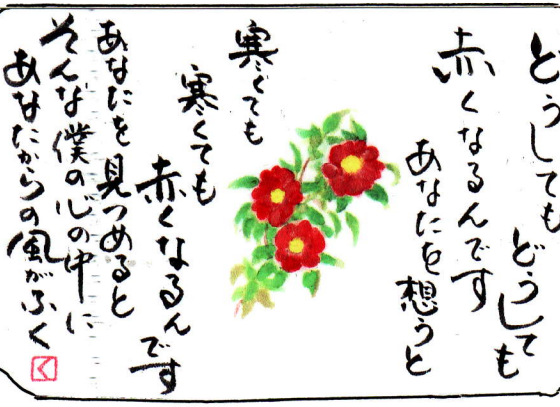 どうしても どうしても
赤くなるんです
あなたを想うと
寒くても
寒くても
赤くなるんです
あなたを見つめると
そんな僕の心の中に
あなたからの風がふく
く